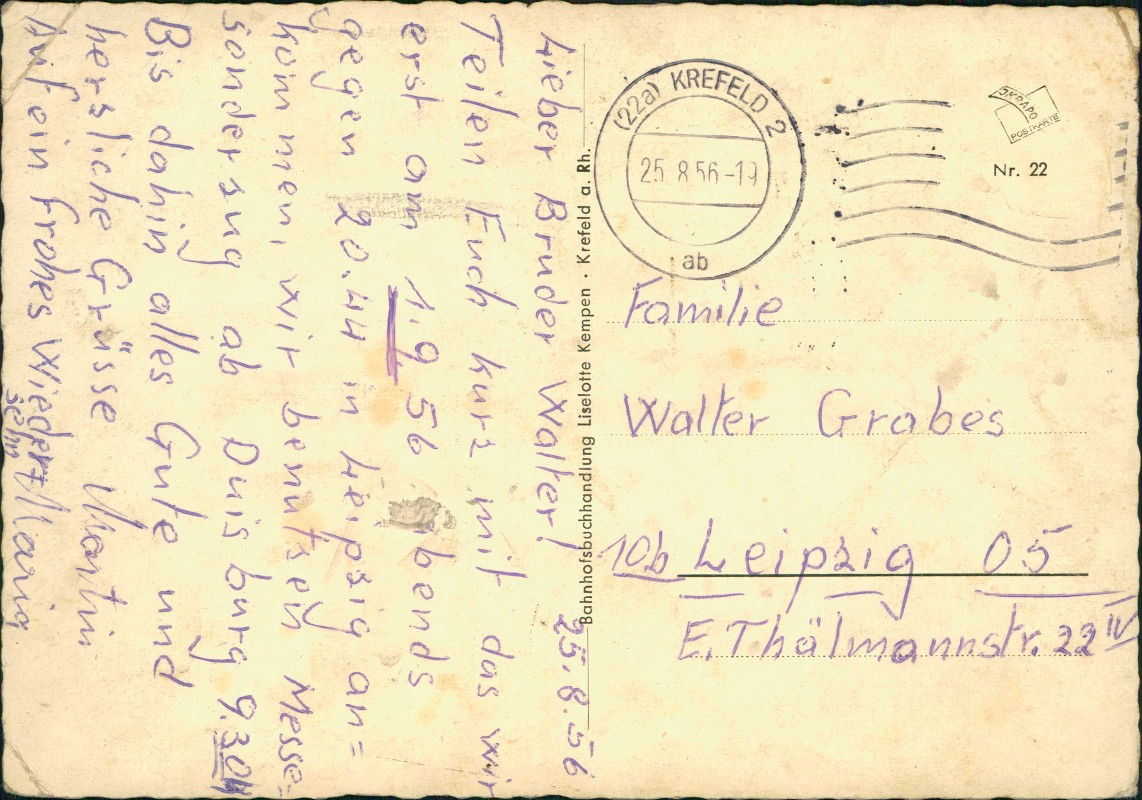 Lieber Bruder Walter! 25.8.56
Teilen Euch kurz mit das wir
erst am 1.9 56 abends
gegen 20.44 in Leipzig an=
kommen, wir benutzen Messe-
sonderzug ab Duisburg 9.30h
Bis dahin alles Gute und
herzliche Grüsse Martin
Auf ein frohes Wieder= Maria
sehn
Bahnhofsbuchhandlung Liselotte Kempen · Krefeld a. Rh.
(22a) KREFELD 2
25.8.56-19
ab
JKRAPO
POSTKARTE
Nr. 22
Familie
Walter Grabes
10b Leipzig 05
E. Thälmannstr. 22 IV